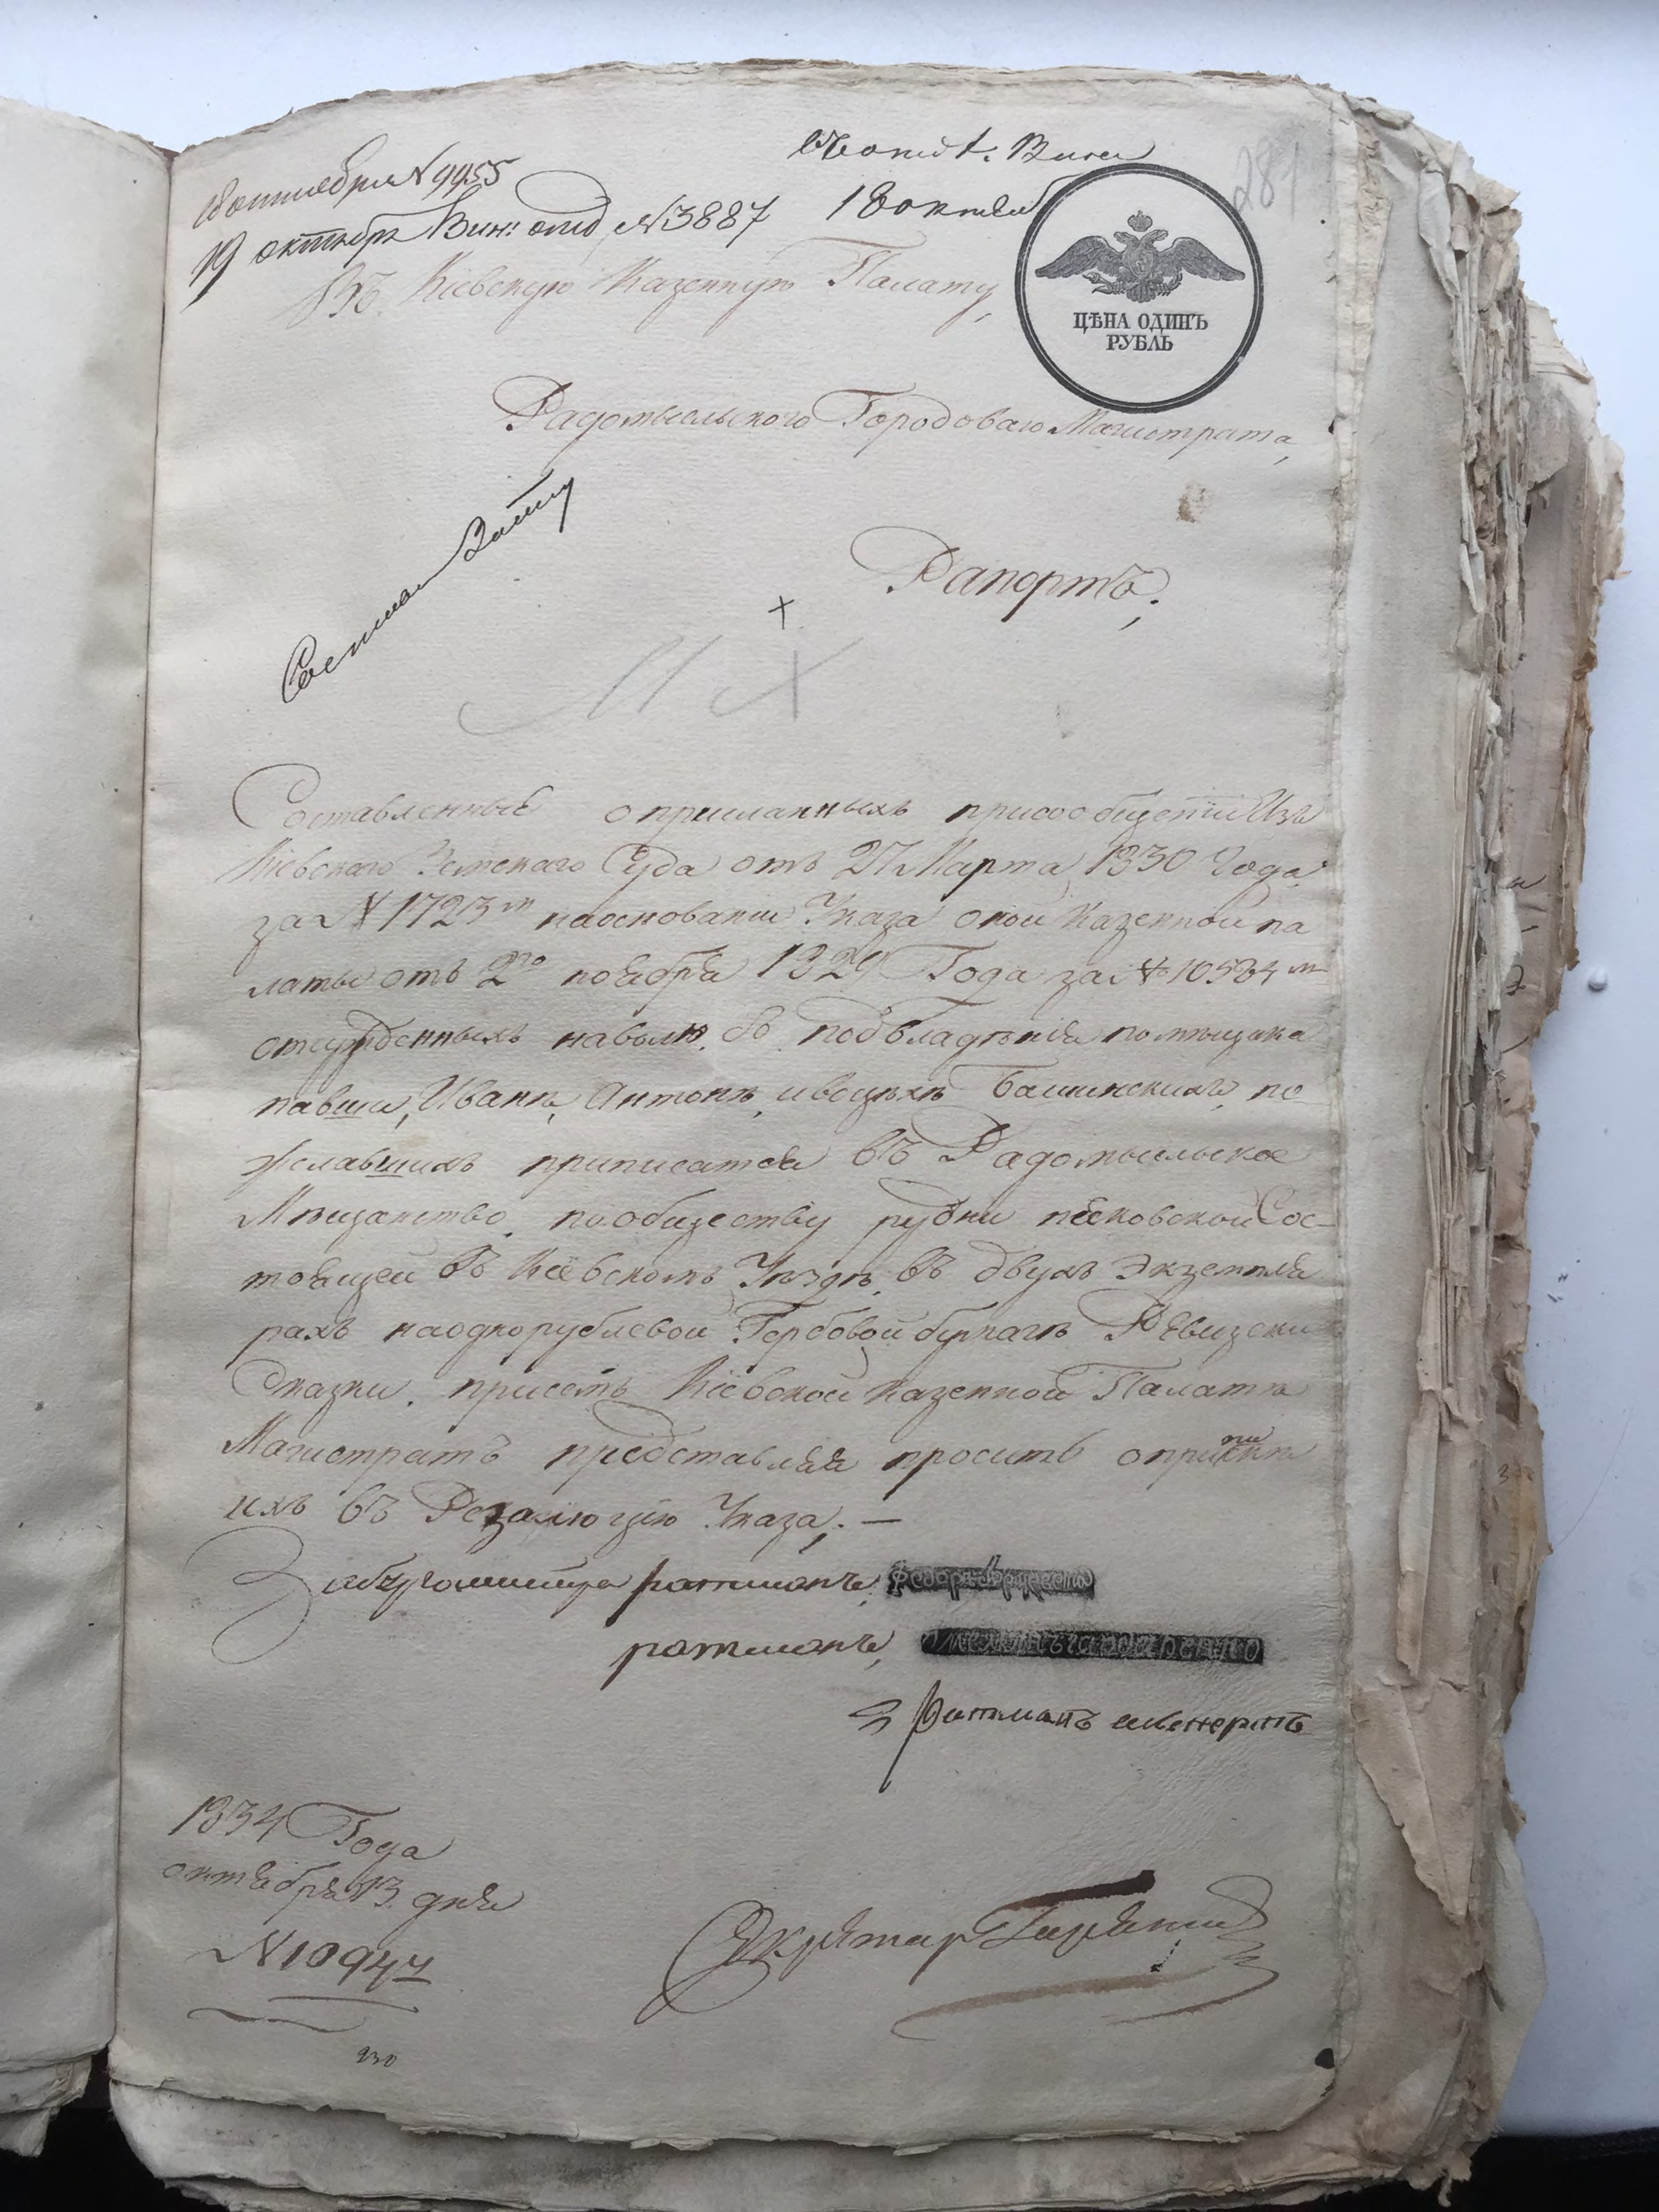 18 октября №9955
19 октябр Вин: отд №3887
18 октяб
281
Въ Кіевскую Казенную Палату,
ЦѢНА ОДИНЪ
РУБЛЬ
Радомысльского Городоваго Магистрата,
Рапортъ,
Составленные о присланныхъ присообщеніи Изъ
Кіевскаго Земскаго Суда отъ 27 Марта 1830 Года
за №1723м наоснованіи Указа оной Казенной па
латы отъ 2го ноября 1829 Года за №10534м
отсужденныхъ наволю изъ подъвладѣнія помѣщика
Иванѣ, Антонѣ, ивоцѣхѣ по
желавшихъ приписатся въ Радомысльское
Мѣщанство пообществу рудни песковской Сос-
тоящей въ Кіевскомъ Уѣздѣ, въ двухъ Экземпля
рахъ наоднорублевой Гербовой бумагѣ Ревизскіи
Сказки, присемъ Кіевской Казенной Палатѣ
Магистратъ представляя проситъ
ихъ въ Резолюцію Указа, —
Забургомистра ратманъ
ратманъ,
ратманъ
1834 Года
октября 13 дня
№10947
Секретар
230